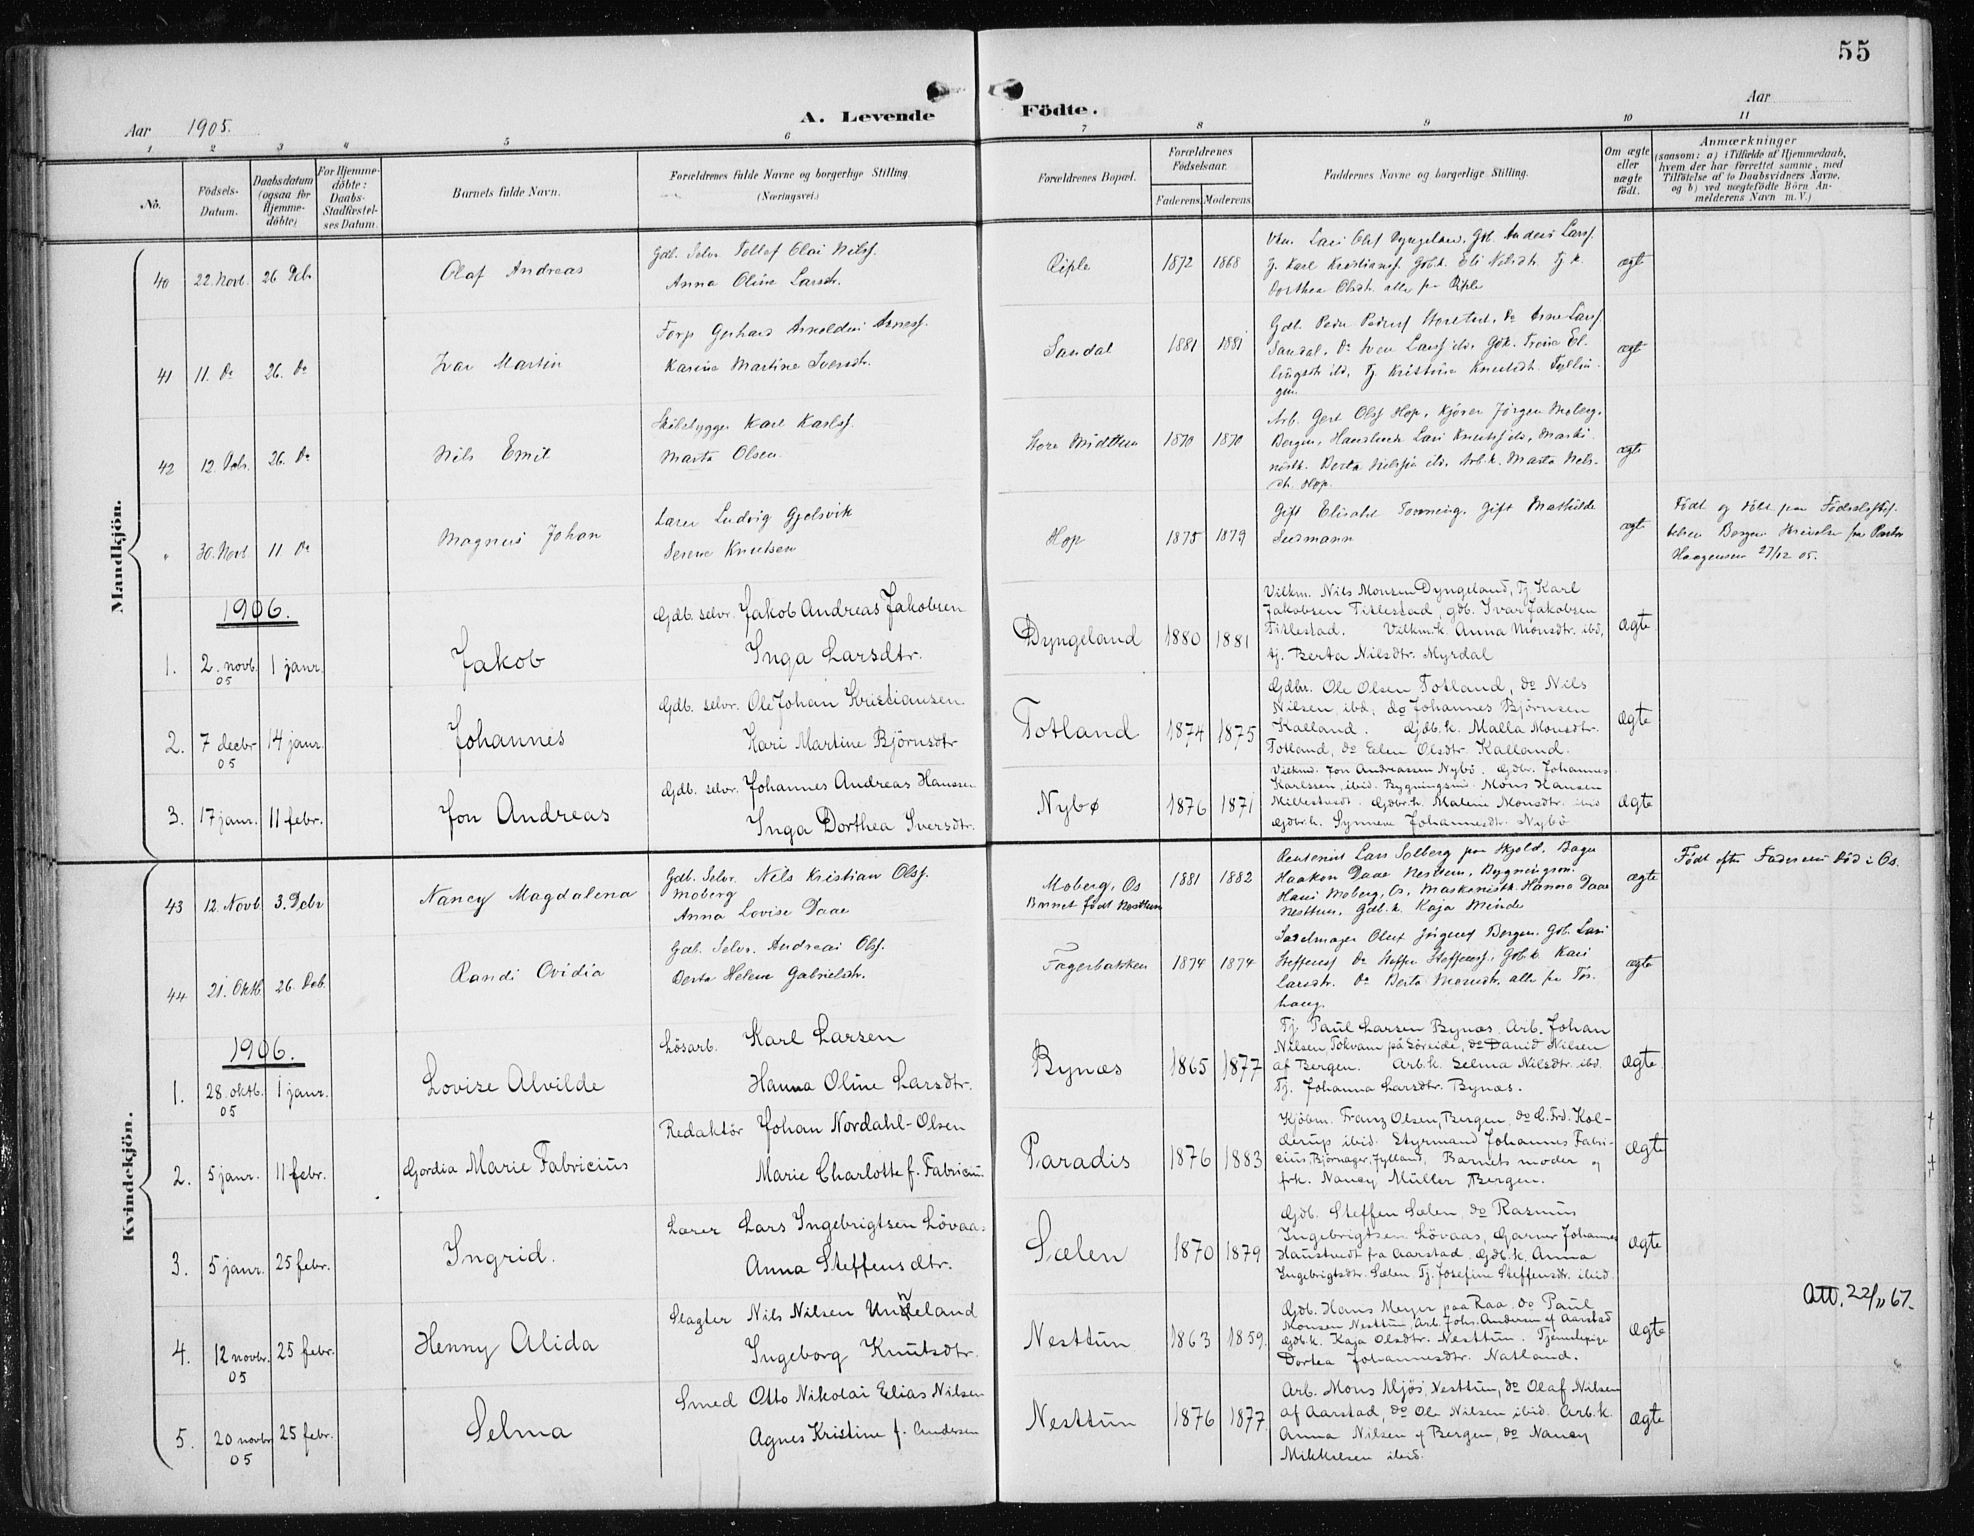 55
A. Levende Födte.
Aar 1905.
Aar
1 2 3 4 5 6 7 8 9 10 11
No.
Födsels-Datum.
Daabsdatum (ogsaa for Hjemmedöbte)
For Hjemmedöbte: Daabs-Stadfæstelses Datum.
Barnets fulde Navn.
Forældrenes fulde Navne og borgerlige Stilling.
(Næringsvei.)
Forældrenes Bopæl.
Forældrenes Födselsaar.
Faderens Moderens
Faddernes Navne og borgerlige Stilling.
Om ægte eller uægte födt.
Anmærkninger
(saasom: a) i Tilfælde af Hjemmedaab,
hvem der har forrettet samme, med
Tilföielse af to Daabsvidners Navne,
og b) ved uægtefödte Börn An-
melderens Navn m. V.)
Mandkjön.
40 22. Novb. 26 Dcb. Olaf Andreas
Gdb. Selv. Tollef Olai Nilss.
Anna Oline Larsdr.
Riple 1872 1868
Lars Olaf Dyngeland, Gdb. Anders Larss.
Tj. Karl Kristianss. Gdb.k. Eli Nilsdr. Tj. k.
Dorthea Olsdr. alle fra Riple
ægt
41 11. Do 26. Do Ivar Martin
Forp Gerhard Arnoldus Arness.
Karine Martine Iversdr.
Sandal 1881 1881
Gdb. Peder Pederss Storetvd, Do Arne Larss
Sandal, Do Iver Larss ibd, Gdk.
ibd, Tj Kristine Knutsdr. Fyllin-
gen.
ægt
42 12. Dcb. 26. Do Nils Emil
Skibsbygger Karl Karlss.
Marta Olsen.
Store Midttun 1870 1870
Arb. Gert Olss Hop, Kjører Jørgen Moberg,
Bergen, Lars Knutss ibd,
Berta ibd, Arb.k. Marta Nels-
dr. Hop.
ægte
" 30. Novb. 11. Do Magnus Johan
Lærer Ludvig Gjelsvik
Serene Knutsen
Hop 1875 1879
Gift Elisabet Tornning, Gift Mathilde
Susmann
ægte
Født og døbt paa Fødselsstif-
telsen Bergen Skrivelse fra Pastor
Haagensen 27/12 05.
1906.
1. 2. novb. 05 1 janr. Jakob
Gdb. selvr. Jakob Andreas Jakobsen
Inga Larsdtr.
Dyngeland 1880 1881
Vilkm. Nils Monsen Dyngeland, Tj Karl
Jakobsen Titlestad, gdb. Ivar Jakobsen
Titlestad. Vilkm.k. Anna Monsdtr. ibid,
tj. Berta Nilsdtr. Myrdal
ægte
2. 7 decbr 05 14 janr. Johannes
Gdb. selvr. Ole Johan Kristiansen
Kari Martine Björnsdtr
Totland 1874 1875
Gdbr. Ole Olsen Totland, do Nils
Nilsen ibd, do Johannes Björnsen
Kalland. Gdb.k. Malla Monsdtr.
Totland, do Elen Olsdtr. Kalland.
ægte
3. 17 janr. 11 febr. Jon Andreas
Gdb. selvr. Johannes Andreas Hanssen
Inga Dorthea Iversdtr.
Nybø 1876 1871
Vilkmd. Jon Andreassen Nybö. Gdbr. Johannes
Karlssen, ibid. Bygningsmd. Mons Hansen
Midtestuedt. Gdbr.k. Malene Monsdtr. ibid
Gdbr.k. Synneve Johannesdtr. Nybö
ægte
Kvindekjön.
43 12. Novb 3. Dcbr Nancy Magdalena
Gdb. Selv. Nils Kristian Olss.
Moberg
Anna Lovise Daae
Moberg, Os
Barnet født Nesttun
1881 1882
Rentenist Lars Solberg paa Skjold. Bager
Haakon Daae Nesttun, Bygningsm.
Hans Moberg, Os, Maskinistk. Hanna Daae
Nesttun, Gdb. k. Kaja Minde
ægte
Født efter Faderens Død i Os.
44 21. Oktb. 26. Dcb. Randi Ovidia
Gdb. Selv. Andreas Olss.
Berta Helene Gabrielsdr.
Fagerbakken 1874 1874
Sadelmager Oluf Jørgenss Bergen, Gdb. Lars
Steffenss Do Steffen Steffenss, Gdb.k. Kari
Larsdtr. Do Berta Monsdtr. alle fra Tors-
haug.
ægte
1906.
1. 28. oktb. 05 1 janr. Lovise Alvilde
Lösarb. Karl Larsen
Hanna Oline Larsdtr.
Bynæs 1865 1877
Tj. Paul Larsen Bynæs. Arb. Johan
Nilsen, Tokvam på Söreide, do David Nilsen
af Bergen. Arb.k. Selma Nilsdtr. ibd.
Tj. Johanna Larsdtr. Bynæs.
ægte
2. 5 janr. 11 febr. Gordia Marie Fabricius
Redaktör Johan Nordahl-Olsen
Marie Charlotte f. Fabricius.
Paradis 1876 1883
Kjöbm. Franz Olsen, Bergen, do C. Frd. Kol-
derup ibid. Styrmand Johannes Fabri-
cius, Björnager, Jylland, Barnets moder og
frk. Nancy Müller Bergen.
ægte
3. 5 janr. 25 febr. Ingrid.
Lærer Lars Ingebrigtsen Lövaas
Anna Steffensdtr.
Sælen 1870 1879
Gdb. Steffen Sælen, do Rasmus
Ingebrigtsen Lövaas, Garver Johannes
Haustvedt fra Aarstad. Gdb.k. Anna
Ingebrigtsdtr. Sælen. Tj. Josefine Steffensdtr. ibid.
ægte
4. 12 novbr. 05 25 febr. Henny Alida
Slagter Nils Nilsen Unneland
Ingeborg Knutsdtr.
Nesttun 1863 1859.
Gdb. Hans Meyer paa Raa, do Paul
Monsen Nesttun, Arb. Johs. Andersen af Aarstad
Gdb.k. Kaja Olsdtr. Nesttun. Tjenestepige
Dortea Johannesdtr. Natland.
ægte
Att. 22/11 67.
5. 20 novbr 05 25 febr. Selma
Smed Otto Nikolai Elias Nilsen
Agnes Kristine f. Andersen
Nesttun 1876 1877.
Arb. Mons Mjös, Nesttun, do Olaf Nilsen
af Aarstad, do Ole Nilsen ibid. Arb.k.
Anna Nilsen af Bergen, do Nancy
Mikkelsen ibid.
ægte